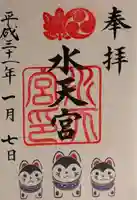 奉拝
水天宮
平成三十一年一月七日